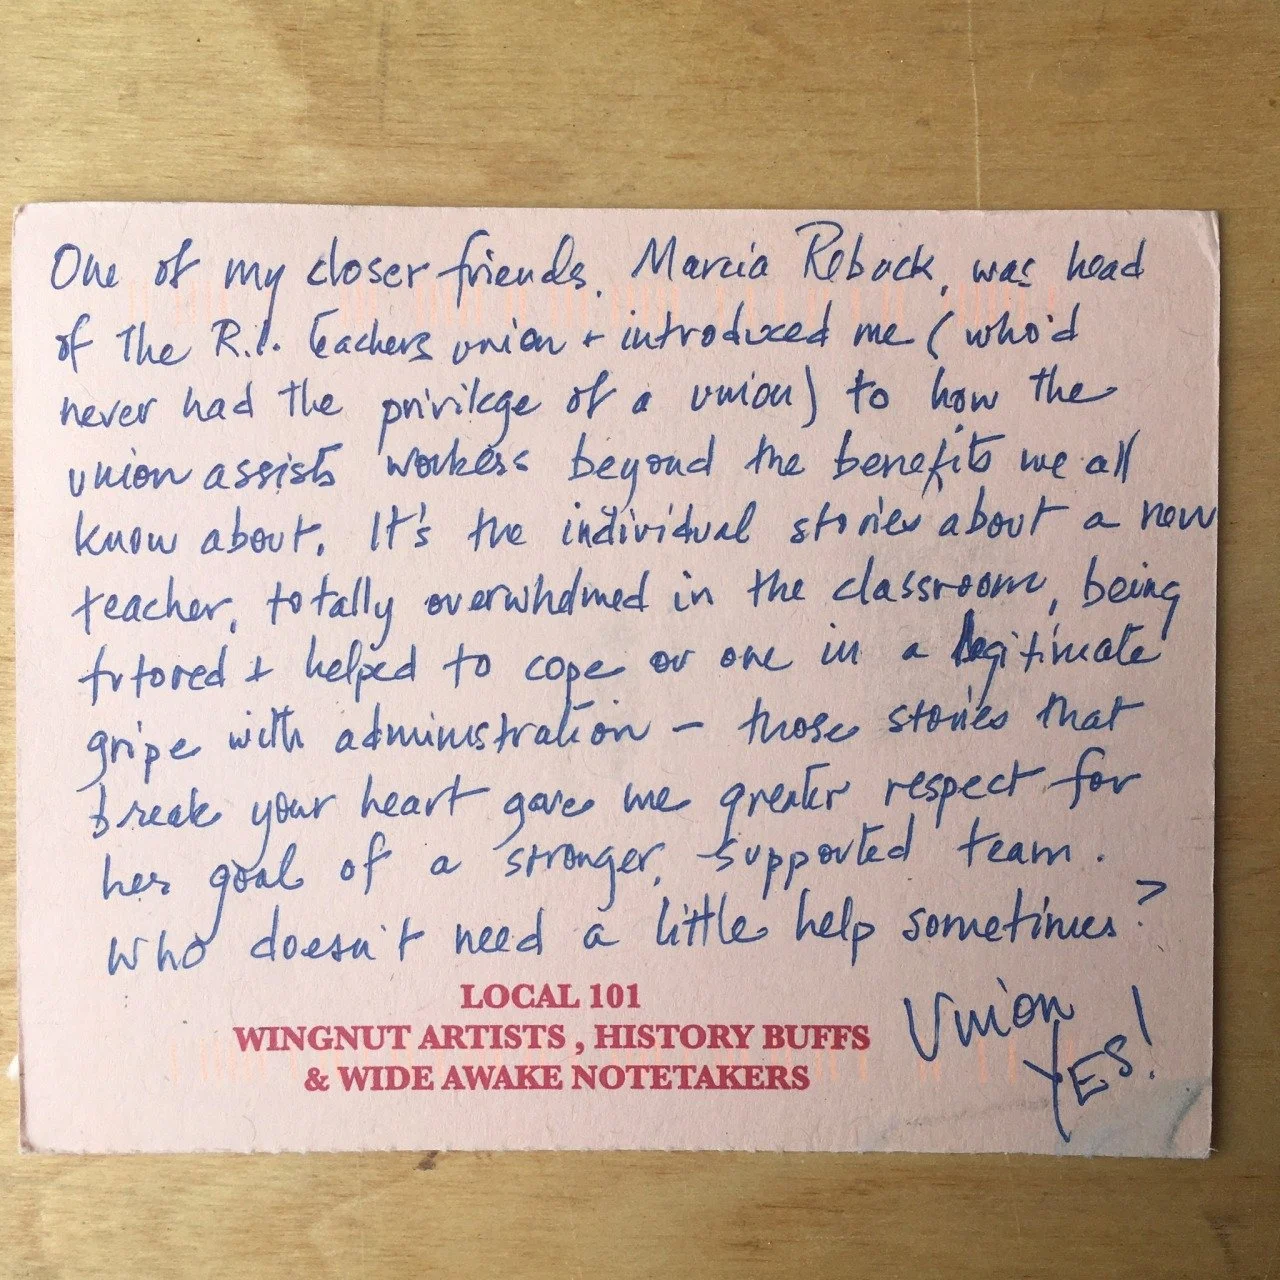 One of my closer friends, Marcia Reback, was head
of the R.I. teachers union + introduced me (who'd
never had the privilege of a union) to how the
union assists workers beyond the benefits we all
know about. It's the individual stories about a new
teacher, totally overwhelmed in the classroom, being
tutored + helped to cope or one in a legitimate
gripe with administration – those stories that
break your heart gave me greater respect for
her goal of a stronger, supported team.
Who doesn't need a little help sometimes?
Union
YES!
LOCAL 101
WINGNUT ARTISTS , HISTORY BUFFS
& WIDE AWAKE NOTETAKERS